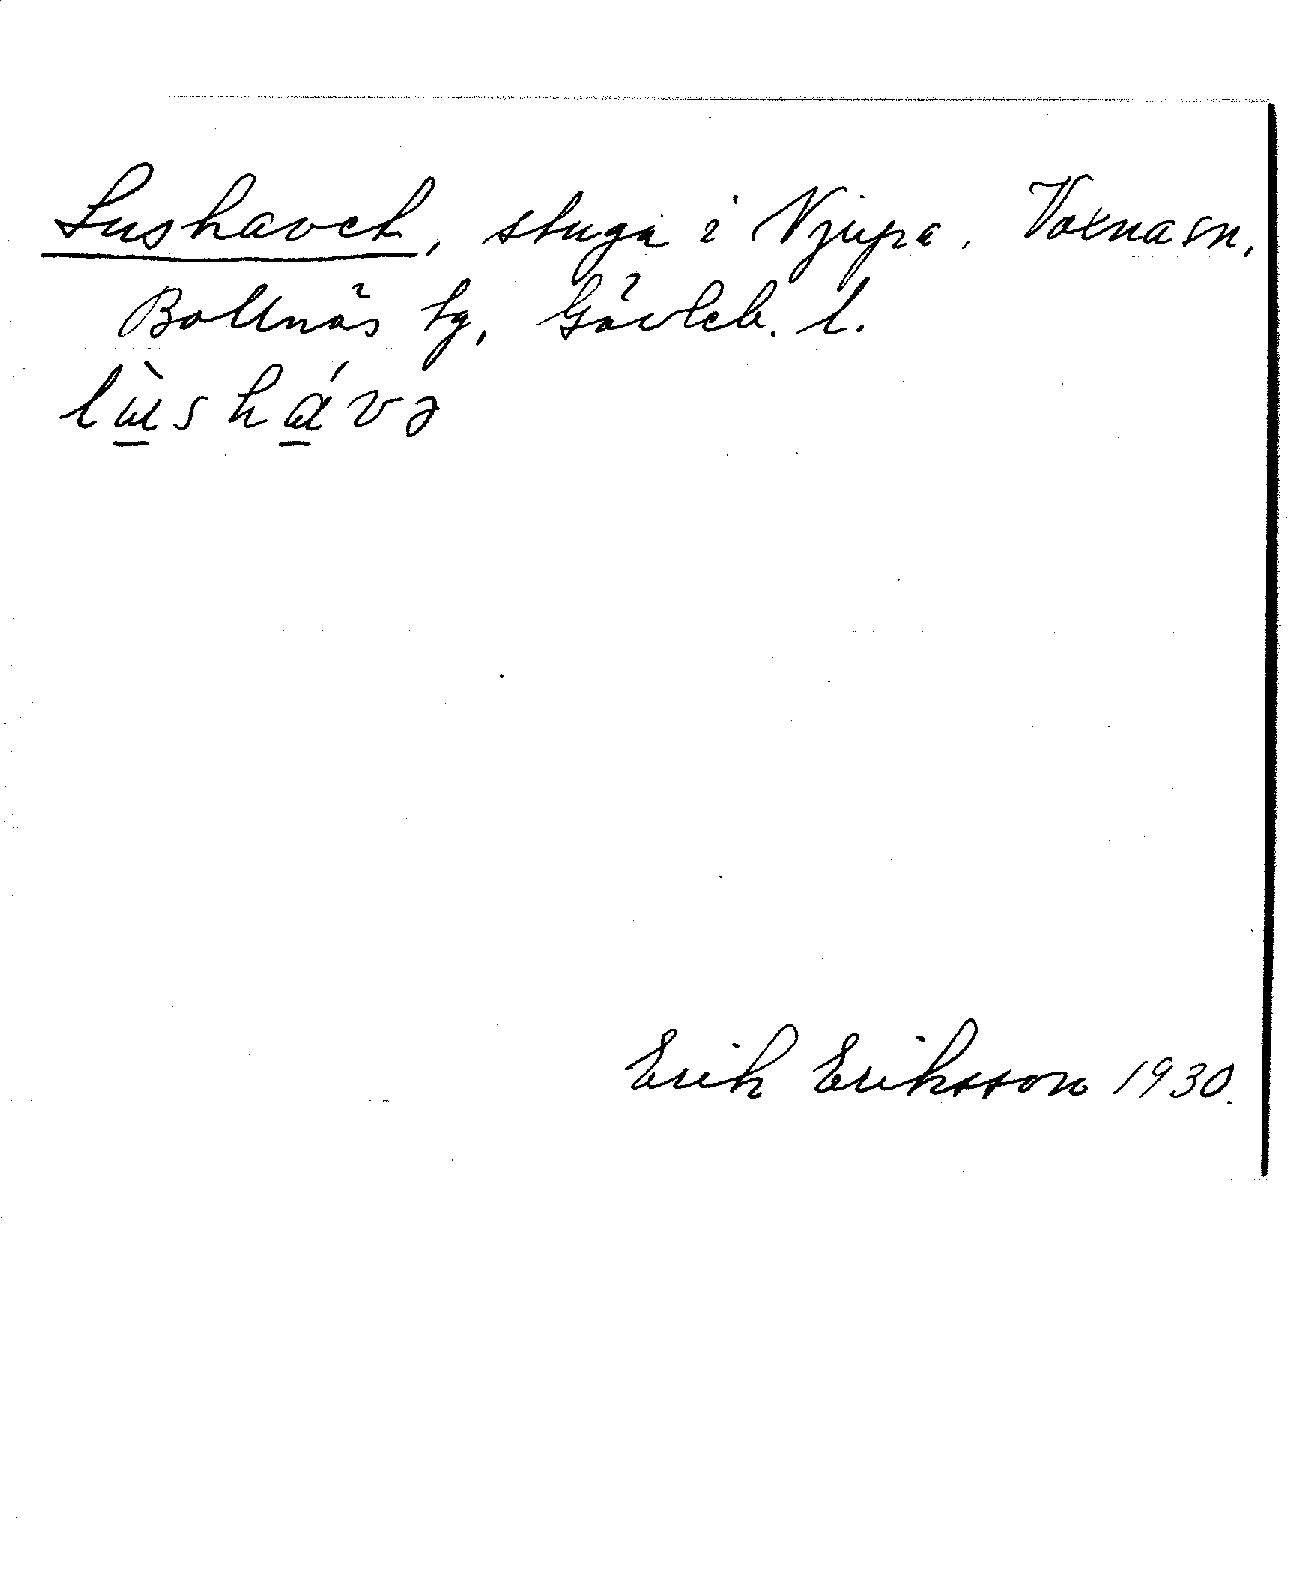 Lushavet, stuga i Njupa, Voxna sn,
Bollnäs tg, Gävleb. l.
lùshávə
Erik Eriksson 1930.